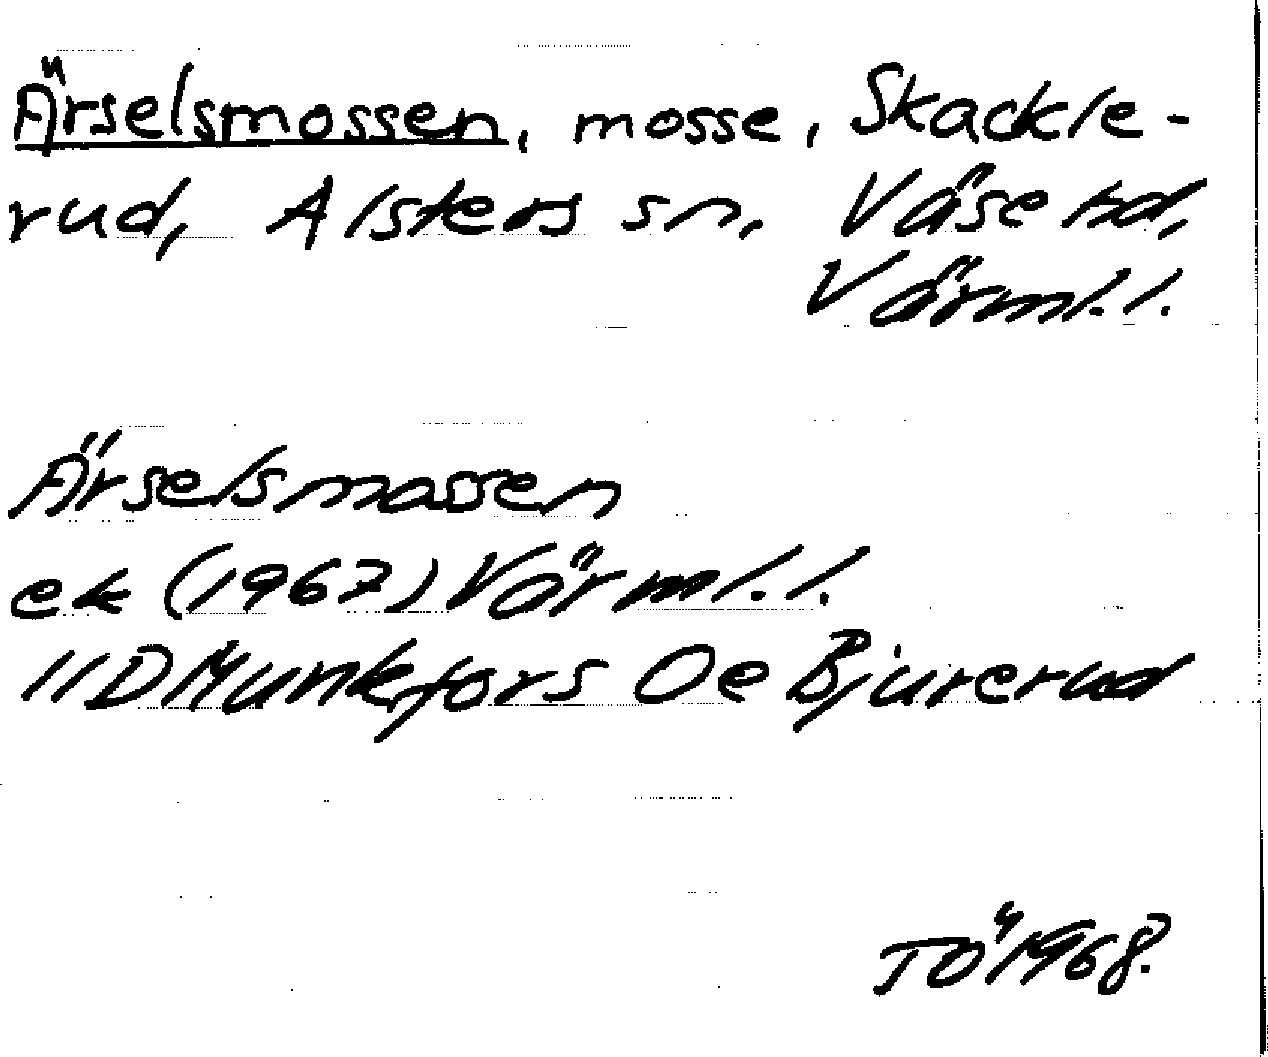 Ärselsmossen, mosse, Skackle-
rud, Alsters sn, Väse hd,
Värml. l.
Ärselsmossen
ek (1967) Värml. l.
11D Munkfors Oe Bjurerud
TÖ 1968.